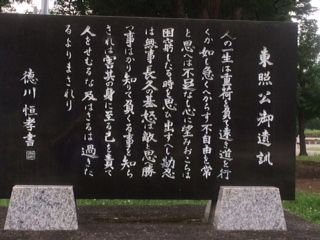 東照公御遺訓
人の一生は重荷を負て遠き道を行
くが如し急くへからす不自由を常
と思へは不足なし心に望みおこらは
困窮したる時を思ひ出すへし勘忍
は無事長久の基怒は敵と思へ勝
つ事はかり知りて負くる事を知ら
されは害其の身に至る己を責て
人をせむるな及はさるは過きた
るよりまされり
徳川恒孝書